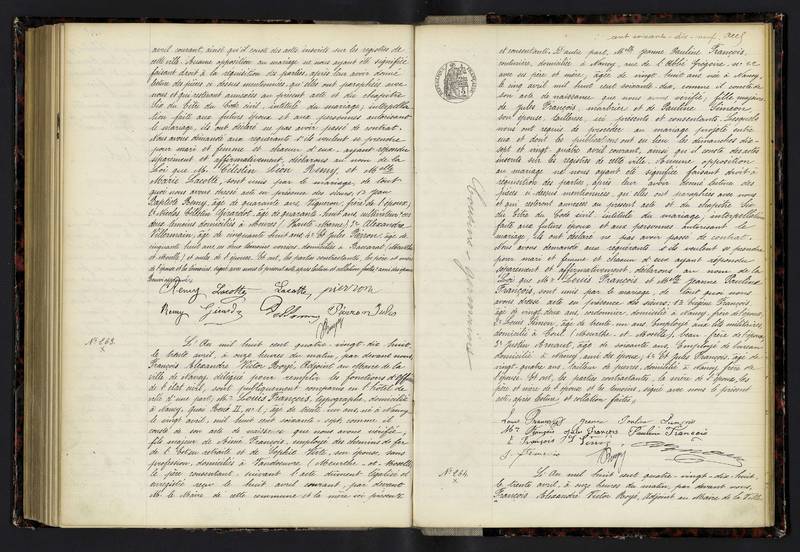 avril courant, ainsi qu'il conste des actes inscrits sur les registres de
cette ville. Aucune opposition au mariage ne nous ayant été signifiée
faisant droit à la réquisition des parties, après leur avoir donné
lecture des pièces ci dessus mentionnées, qu'elles ont paraphées avec
nous et qui resteront annexées au présent acte et du chapitre
six du titre du Code civil, intitulé du mariage, interpellation
faite aux futurs époux et aux personnes autorisant
le mariage, ils ont déclaré ne pas avoir passé de contrat.
Nous avons demandé aux requérants s'ils veulent se prendre
pour mari et femme et chacun d'eux ayant répondu
séparément et affirmativement, déclarons au nom de la
Loi que Mr. Célestin Léon Remy, et Melle
Marie Lacotte, sont unis par le mariage, de tout
quoi nous avons dressé acte en présence des sieurs, 1° Jean
Baptiste Remy, âgé de quarante ans, Vigneron, frère de l'époux;
2° Nicolas Célestin Girardot, âgé de quarante huit ans,
domiciliés à (Haute Marne); 3° Alexandre
âgé de cinquante huit ans; 4° et Jules Pierron, âgé de
cinquante huit ans, domiciliés à Baccarat (Meurthe
et Moselle) et amis de l'épouse. Et ont, les parties contractantes, les père et mère
de l'époux et les témoins, signé avec nous le présent acte après lecture et collation faites
Remy Lacotte Lacotte pierron
Remy Pierron Jules
Royé
N° 263.
L'An mil huit cent quatre-vingt-dix huit,
le trente avril, à onze heures du matin, par devant nous,
François Alexandre Victor Royé, Adjoint au Maire de la
ville de Nancy, délégué pour remplir les fonctions d'Officier
de l'état civil, sont publiquement comparus en l'hôtel de
ville d'une part, Mr. Louis François, typographe, domicilié
à Nancy, quai René II, n° 1, âgé de trente un ans, né à Nancy
le vingt avril, mil huit cent soixante-sept, comme il
conste de son acte de naissance que nous avons vérifié,
fils majeur de Aimé François, employé des chemins de fer
de l'Est en retraite et de Sophie son épouse, sans
profession, domiciliés à Vandoeuvre (Meurthe-et-Moselle)
le père consentant, suivant l'acte dûment légalisé et
enregistré reçu le huit avril courant, par devant
Mr. le Maire de cette commune et la mère ici présente
cent soixante-dix-neuf.
et consentante. D'autre part, Melle Jeanne Pauline François,
couturière, domiciliée à Nancy, rue de l'Abbé Grégoire n° 22
avec ses père et mère, âgée de vingt huit ans née à Nancy,
le cinq avril mil huit cent soixante dix, comme il conste de
son acte de naissance que nous avons vérifié; fille majeure
de Jules François, marbrier et de Pauline Simeon
son épouse, tailleuse, ici présents et consentants. Lesquels
nous ont requis de procéder au mariage projeté entre
eux et dont les publications ont eu lieu les dimanches dix-
sept et vingt quatre avril courant, ainsi qu'il conste des actes
inscrits sur les registres de cette ville. Aucune opposition
au mariage ne nous ayant été signifiée faisant droit à
réquisition des parties, après leur avoir donné lecture des
pièces ci dessus mentionnées qu'elles ont paraphées avec nous
et qui resteront annexées au présent acte et du chapitre six
du titre du Code civil intitulé du mariage, interpellation
faite aux futurs époux et aux personnes autorisant le
mariage, ils ont déclaré ne pas avoir passé de contrat.
Nous avons demandé aux requérants s'ils veulent se prendre
pour mari et femme et chacun d'eux ayant répondu
séparément et affirmativement, déclarons au nom de la
Loi que Mr. Louis François et Melle Jeanne Pauline
François, sont unis par le mariage, de tout quoi nous
avons dressé acte en présence des sieurs; 1° Eugène François,
âgé de vingt deux ans, cordonnier, domicilié à Nancy, frère de l'époux;
2° Louis Simon, âgé de trente un ans, Employé aux lits militaires,
domicilié à Toul (Meurthe et Moselle), beau frère de l'époux;
3° Justin âgé de soixante ans, Employé de bureau
domicilié à Nancy, ami de l'époux; 4° Et Jules François, âgé de
vingt-quatre ans, tailleur de pierres, domicilié à Nancy, frère de
l'épouse. Et ont, les parties contractantes, la mère de l'époux, les
père et mère de l'épouse et les témoins, signé avec nous le présent
acte, après lecture et collation faites,
Louis François Jeanne Pauline François
Jules François Pauline François
E François
Royé
N° 264.
L'An mil huit cent quatre-vingt-dix huit,
le trente avril, à onze heures du matin, par devant nous,
François Alexandre Victor Royé, Adjoint au Maire de la Ville